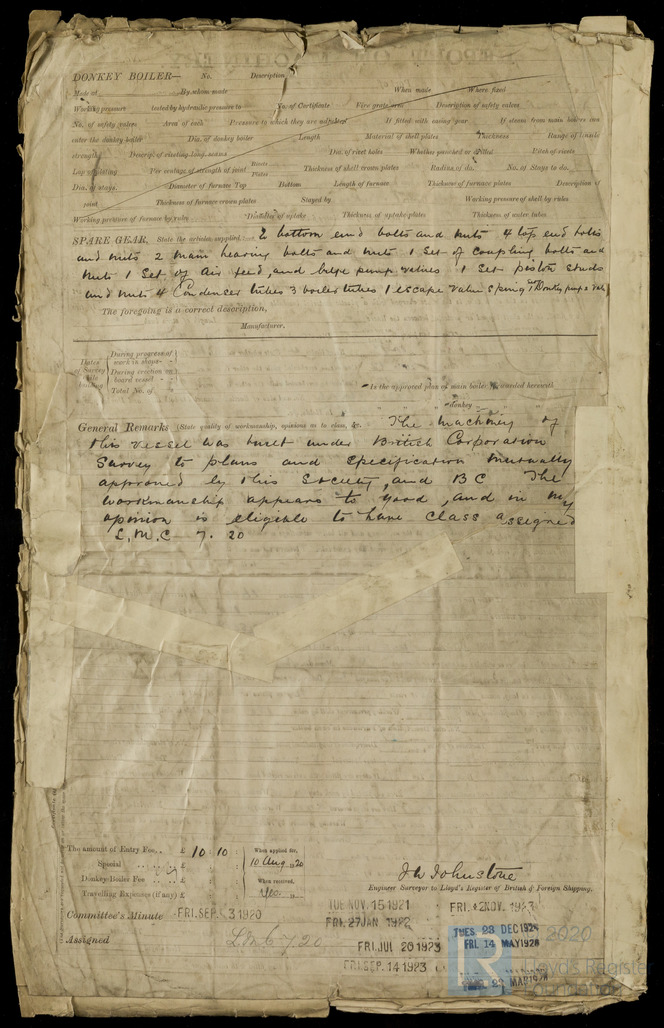 DONKEY BOILER— No. Description
Made at By whom made When made Where fixed
Working pressure tested by hydraulic pressure to No. of Certificate Fire grate area Description of safety valves
No. of safety valves Area of each Pressure to which they are adjusted If fitted with easing gear If steam from main boilers can
enter the donkey boiler Dia. of donkey boiler Length Material of shell plates Thickness Range of tensile
strength Descrip. of riveting long. seams Dia. of rivet holes Whether punched or drilled Pitch of rivets
Lap of plating Per centage of strength of joint Rivets Plates Thickness of shell crown plates Radius of do. No. of Stays to do.
Dia. of stays. Diameter of furnace Top Bottom Length of furnace Thickness of furnace plates Description of
joint Thickness of furnace crown plates Stayed by Working pressure of shell by rules
Working pressure of furnace by rules Diameter of uptake Thickness of uptake plates Thickness of water tubes
SPARE GEAR. State the articles supplied:— 2 bottom end bolts and nuts 4 top end bolts
and nuts 2 main bearing bolts and nuts 1 Set of coupling bolts and
nuts 1 Set of air feed, and bilge pump valves 1 Set piston studs
and nuts 4 Condenser tubes 3 boiler tubes 1 escape valve spring & Donkey pump
The foregoing is a correct description,
Manufacturer.
Dates of Survey while building
During progress of work in shops - -
During erection on board vessel - -
Total No. of
Is the approved plan of main boiler forwarded herewith
" " " donkey " " "
General Remarks (State quality of workmanship, opinions as to class, &c. The machinery of
this vessel was built under British Corporation
Survey to plans and specification mutually
approved by this Society, and B C The
workmanship appears to good, and in my
opinion is eligible to have class assigned
L.M.C 7. 20
The amount of Entry Fee .. £ 10 : 10 When applied for,
Special £ 10 Aug 1920
Donkey Boiler Fee £ When received,
Travelling Expenses (if any) £
J W Johnstone
Engineer Surveyor to Lloyd's Register of British & Foreign Shipping.
Committee's Minute FRI. SEP. 3 1920
TUE. NOV. 15 1921
FRI. 2 NOV. 1923
FRI. 27 JAN 1922
TUES. 23 DEC 1924
Assigned L.M.C 7 20
FRI. JUL 20 1923
FRI. 14 MAY 1926
FRI. SEP. 14 1923
2020
Lloyd's Register
Foundation